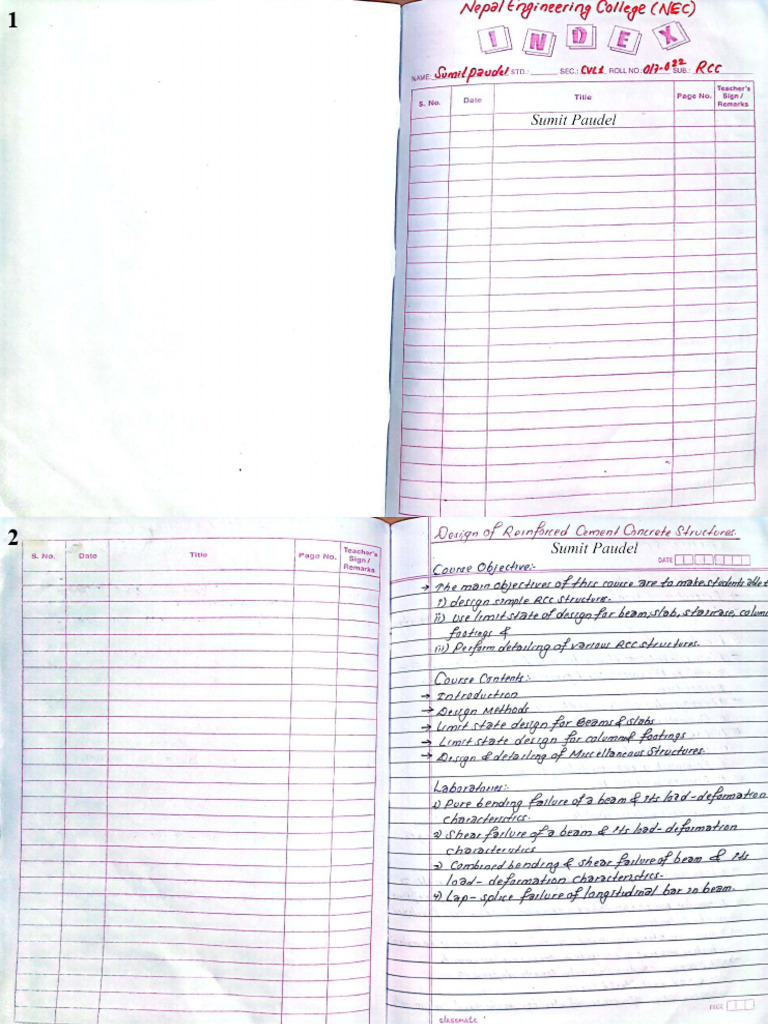 1
Nepal Engineering College (NEC)
INDEX
NAME: Sumit Paudel STD.: SEC.: CVL1 ROLL NO.: 017-022 SUB.: RCC
S. No. Date Title Page No. Teacher's Sign / Remarks
Sumit Paudel
2
S. No. Date Title Page No. Teacher's Sign / Remarks
Design of Reinforced Cement Concrete Structures.
Sumit Paudel
DATE
Course Objective:-
→ The main objectives of this course are to make students able
i) design simple RCC structure.
ii) Use limit state of design for beam, slab, staircase,
footings &
iii) Perform detailing of various RCC structures.
Course Contents:-
→ Introduction
→ Design Methods
→ Limit state design for Beams & slabs
→ Limit state design for column & footings
→ Design & detailing of Miscellaneous Structures.
Laboratories:-
1) Pure bending failure of a beam & its load-deformation
characteristics.
2) Shear failure of a beam & its load-deformation
characteristics
3) Combined bending & shear failure of beam & its
load-deformation characteristics.
4) Lap-splice failure of longitudinal bar in beam.
PAGE
classmate